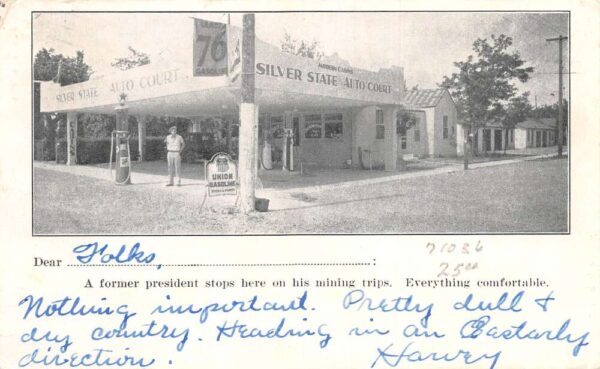 UNION
76
GASOLINE
MODERN CABINS
SILVER STATE AUTO COURT
SILVER STATE AUTO COURT
UNION
GASOLINE
Dear Folks, :
71036
25⁰⁰
A former president stops here on his mining trips. Everything comfortable.
Nothing important. Pretty dull &
dry country. Heading in an Easterly
direction. Harvey